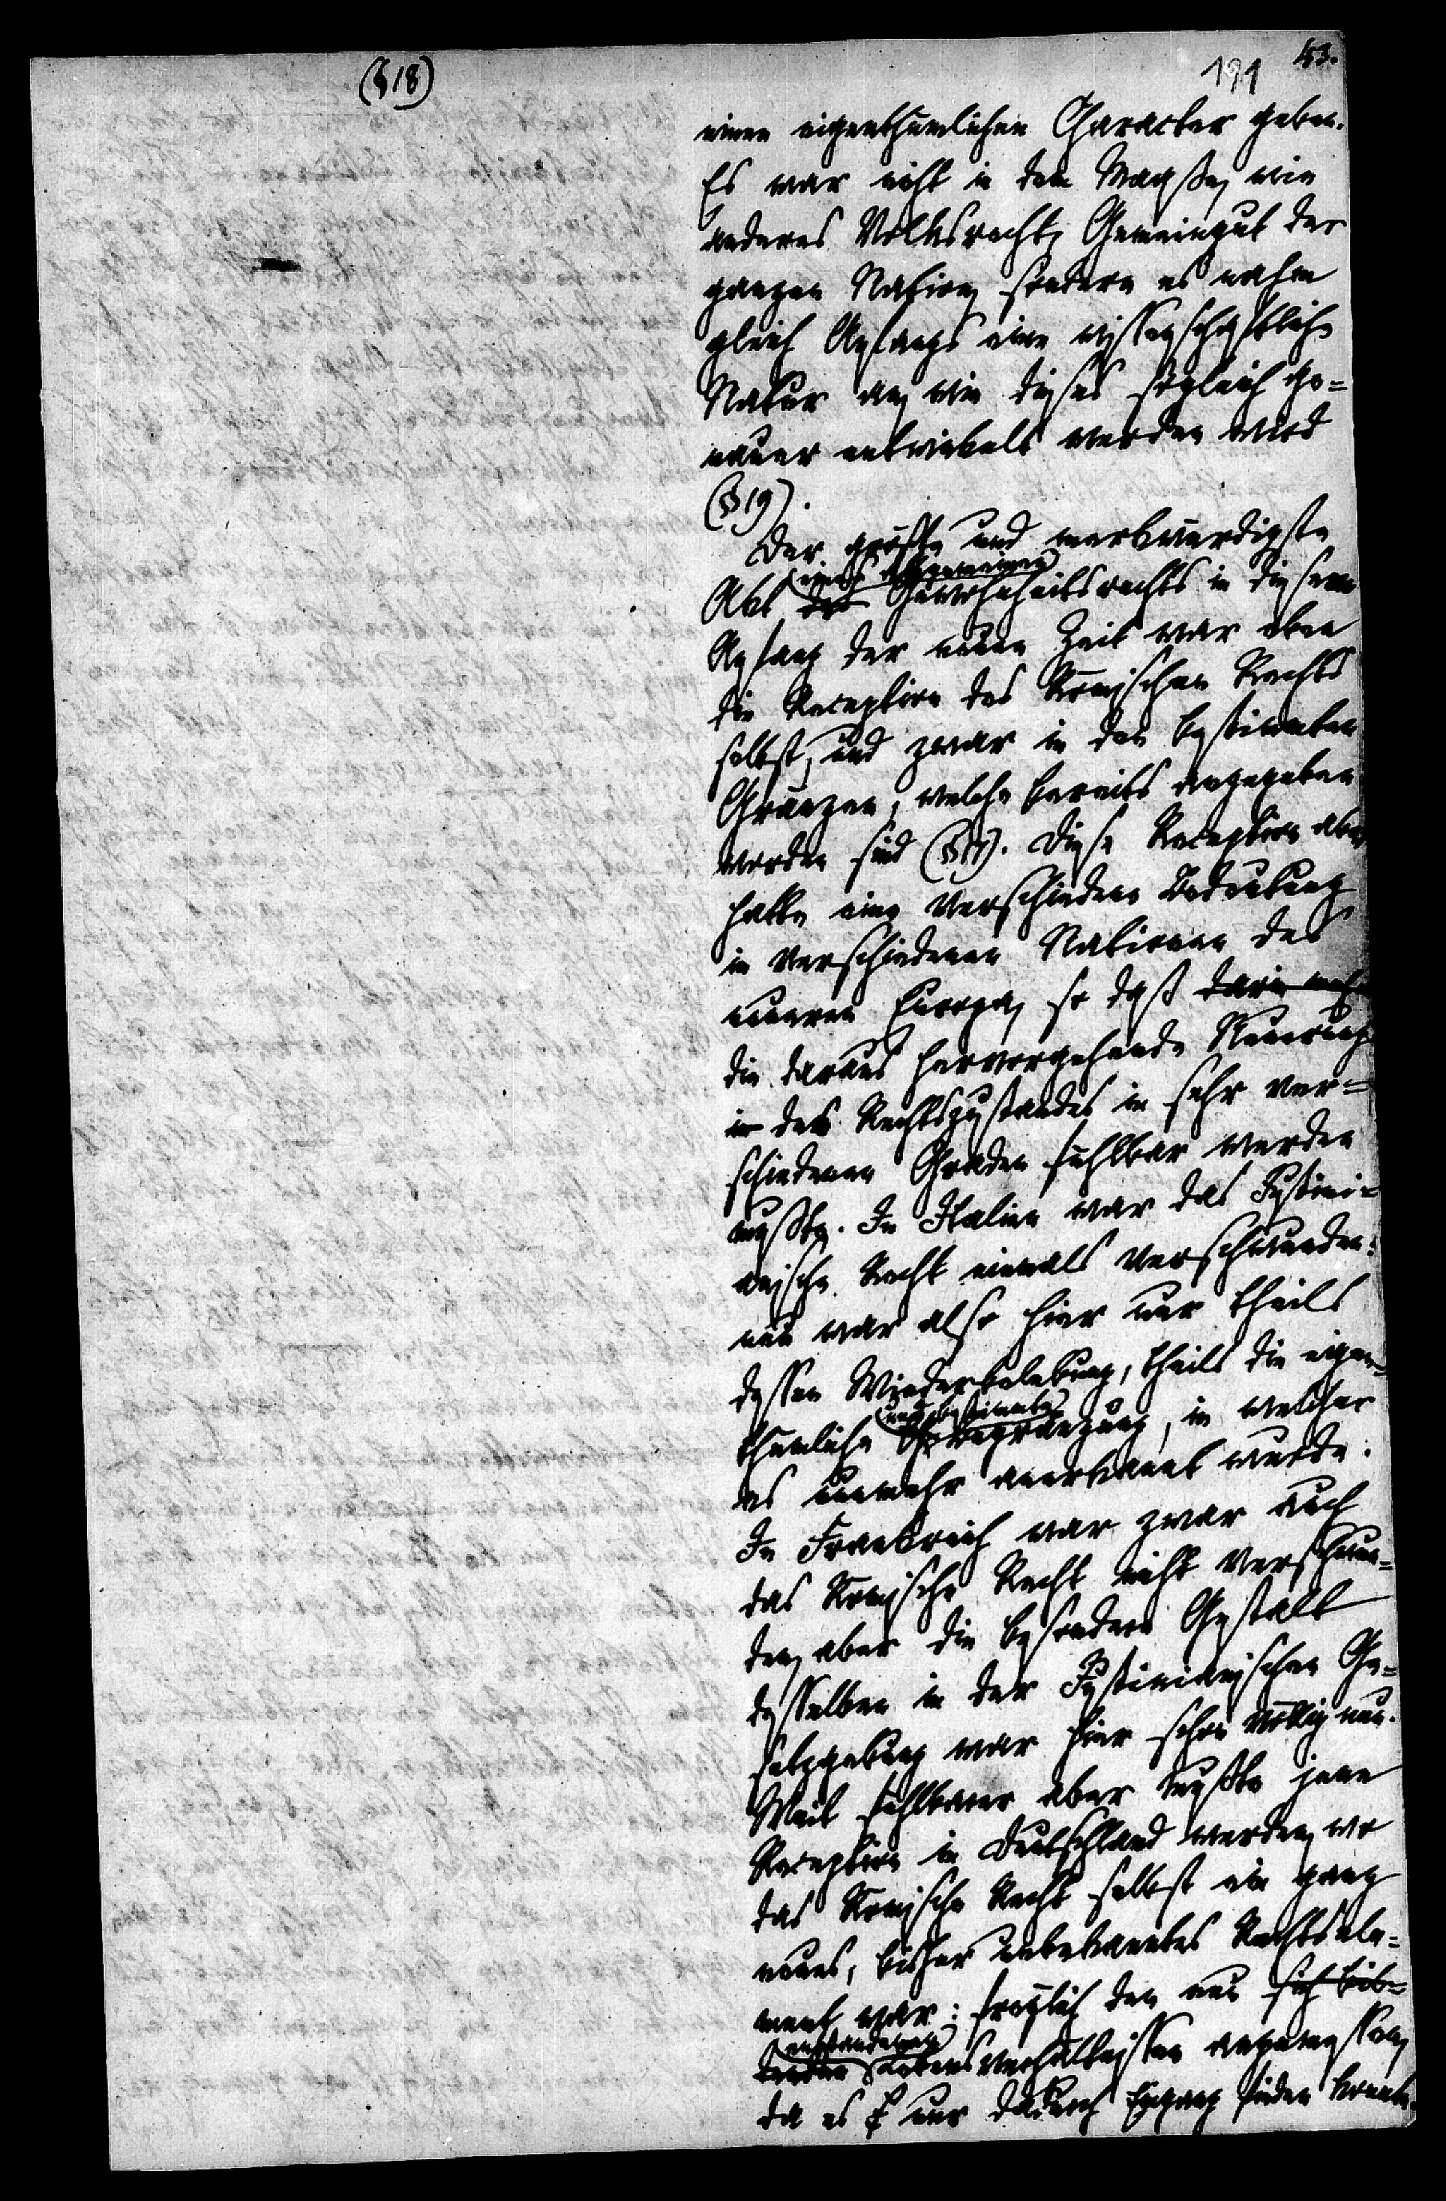 (§18)
191
53.
einen eigenthümlichen Character geben.
Es war nicht in dem Maaße, wie
anderes Volksrecht, Gemeingut der
ganzen Nation, sondern es nahm
gleich Anfangs eine wissenschaftliche
Natur an, wie dieses sogleich ge=
nauer entwickelt werden wird
(§19).
Der größte und merkwürdigste
eines allgemeinen
Akt des Gewohnheitsrechts in diesem
Anfang der neuen Zeit war eben
die Reception des Römischen Rechts
selbst, und zwar in den bestimmten
Gränzen, welche bereits angegeben
worden sind (§17). Diese Reception aber
hatte eine verschiedene Bedeutung
in verschiedenen Nationen des
neueren Europa, so daß darin
die daraus hervorgehende Neuerung
in des Rechtszustandes in sehr ver=
schiedenen Graden fühlbar werden
mußte. In Italien war das Justini=
anische Recht niemals verschwunden:
neu war also hier nur theils
dessen Wiederbelebung, theils die eigen=
und bestimmte
thümliche Begränzung, in welcher
es nunmehr anerkannt wurde.
In Frankreich war zwar auch
das Römische Recht nicht verschwun=
den, aber die besondere Gestalt
desselben in der Justinianischen Ge=
setzgebung war hier schon völlig neu.
Weit fühlbarer aber mußte jene
Reception in Deutschland werden, wo
das Römische Recht selbst ein ganz
neues, bisher unbekanntes Rechtsele=
ment war: freylich den neu sich bil=
entstandenen
denden Lebensverhältnissen angemessen,
da es nur dadurch Eingang finden konnte.